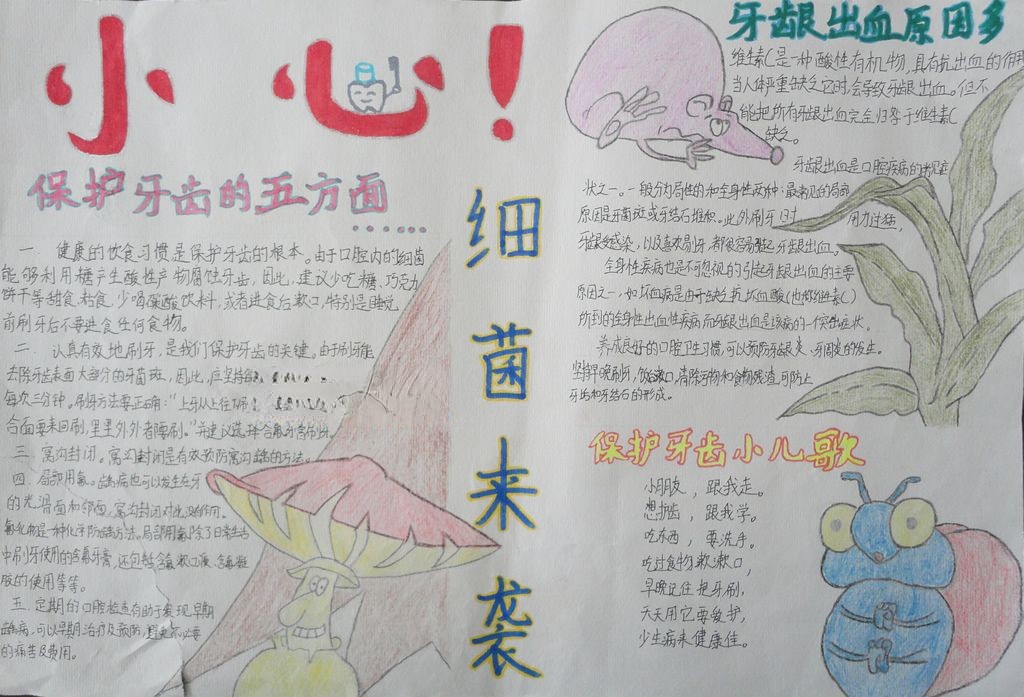 小心!
保护牙齿的五方面
……
一 健康的饮食习惯是保护牙齿的根本。由于口腔内的细菌
能够利用糖产生酸性产物腐蚀牙齿,因此,建议少吃糖、巧克力
饼干等甜食、粘食,少喝碳酸饮料,或者进食后漱口,特别是睡觉
前刷牙后不要进食任何食物。
二、认真有效地刷牙,是我们保护牙齿的关键。由于刷牙能
去除牙齿表面大部分的牙菌斑,因此,应坚持
每次三分钟。刷牙方法要正确:“上牙从上往下刷
合面要来回刷,里里外外都要刷。”并建议选择含氟牙膏刷牙。
三、窝沟封闭。窝沟封闭是有效预防窝沟龋的方法。
四、局部用氟。龋病也可以发生在牙
的光滑面和邻面,窝沟封闭对此没作用。
氟化物是一种化学防龋方法。局部用氟除了日常生活
中刷牙使用的含氟牙膏,还包括含氟漱口液、含氟凝
胶的使用等等。
五、定期的口腔检查有助于发现早期
龋病,可以早期治疗及预防,避免不必要
的痛苦及费用。
细菌来袭
牙龈出血原因多
维生素C是一种酸性有机物,具有抗出血的作用
当人体严重缺乏它时,会导致牙龈出血。但不
能把所有牙龈出血完全归咎于维生素C
缺乏。
牙龈出血是口腔疾病的常见症
状之一。一般分为局性的和全身性两种:最常见的局部
原因是牙菌斑或牙结石堆积。此外刷牙时 用力过猛,
牙龈感染,以及喜欢剔牙,都很容易引起牙龈出血。
全身性疾病也是不可忽视的引起牙龈出血的主要
原因之一,如坏血病是由于缺乏抗坏血酸(也称维素C)
所到的全身性出血性疾病而牙龈出血是该病的一个突出症状。
养成良好的口腔卫生习惯,可以预防牙龈炎、牙周炎的发生。
坚持早晚刷牙,饮后漱口,清除污物和食物残渣,可防止
牙齿和牙结石的形成。
保护牙齿小儿歌
小朋友,跟我走。
想护齿,跟我学。
吃东西,要洗手。
吃过食物漱漱口,
早晚记住把牙刷,
天天用它要爱护,
少生病来健康佳。